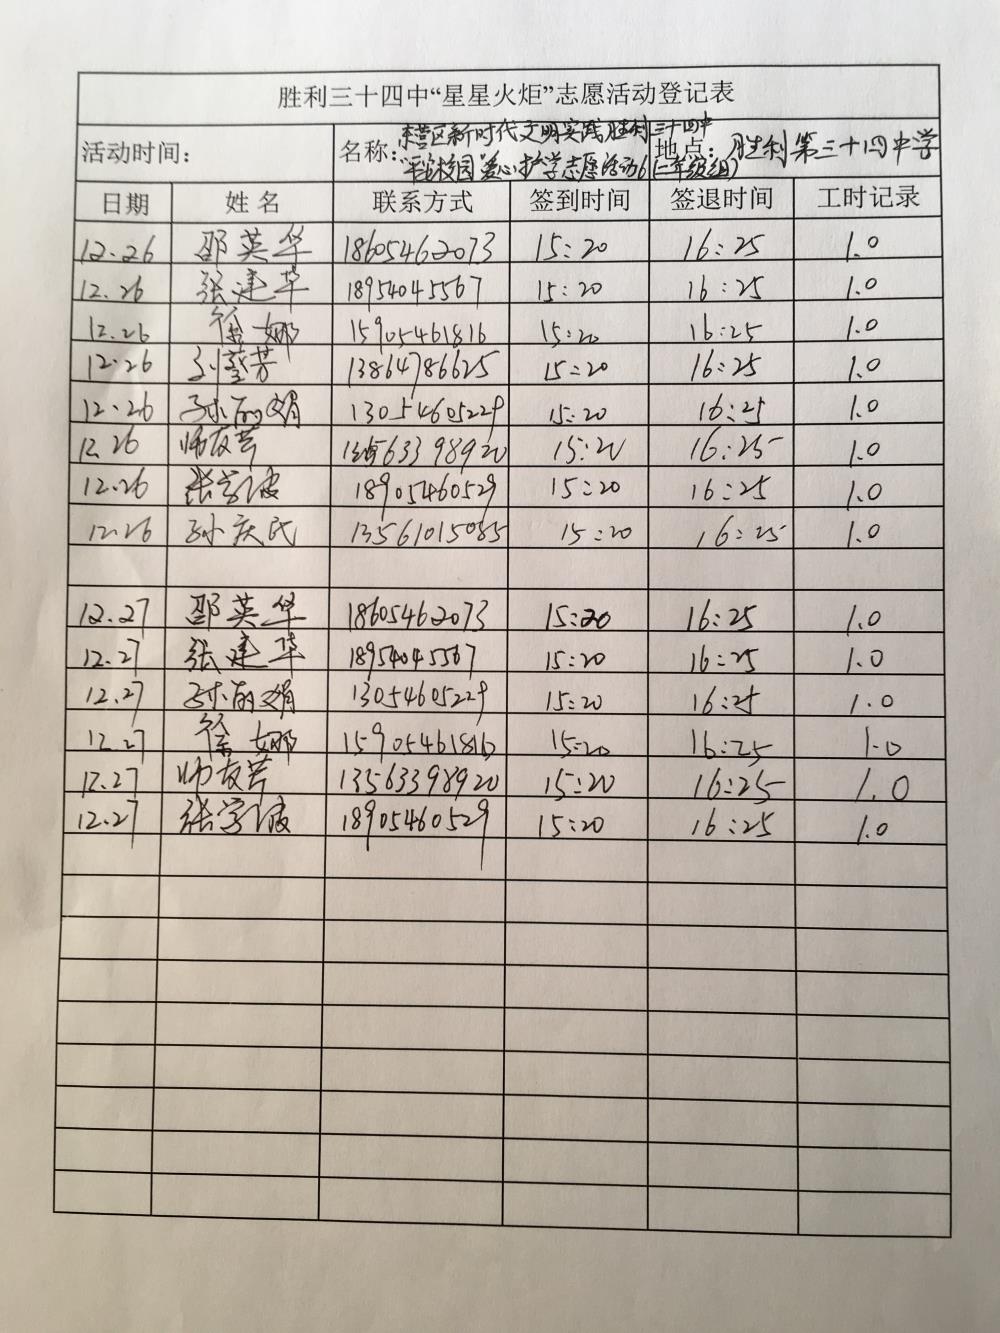 胜利三十四中“星星火炬”志愿活动登记表
活动时间： 名称：东营区新时代文明实践胜利三十四中 地点：胜利第三十四中学
“平安校园 爱心护学志愿活动6(二年级组)
日期 姓名 联系方式 签到时间 签退时间 工时记录
12.26 邵英华 18605462073 15:20 16:25 1.0
12.26 张建华 18954045567 15:20 16:25 1.0
12.26 徐娜 15905461816 15:20 16:25 1.0
12.26 刘蓥芳 13864786625 15:20 16:25 1.0
12.26 孙丽娟 13054605229 15:20 16:25 1.0
12.26 师友芹 13563398920 15:20 16:25 1.0
12.26 张学波 18905460529 15:20 16:25 1.0
12.26 孙庆民 13561015085 15:20 16:25 1.0
12.27 邵英华 18605462073 15:20 16:25 1.0
12.27 张建华 18954045567 15:20 16:25 1.0
12.27 孙丽娟 13054605229 15:20 16:25 1.0
12.27 徐娜 15905461816 15:20 16:25 1.0
12.27 师友芹 13563398920 15:20 16:25 1.0
12.27 张学波 18905460529 15:20 16:25 1.0